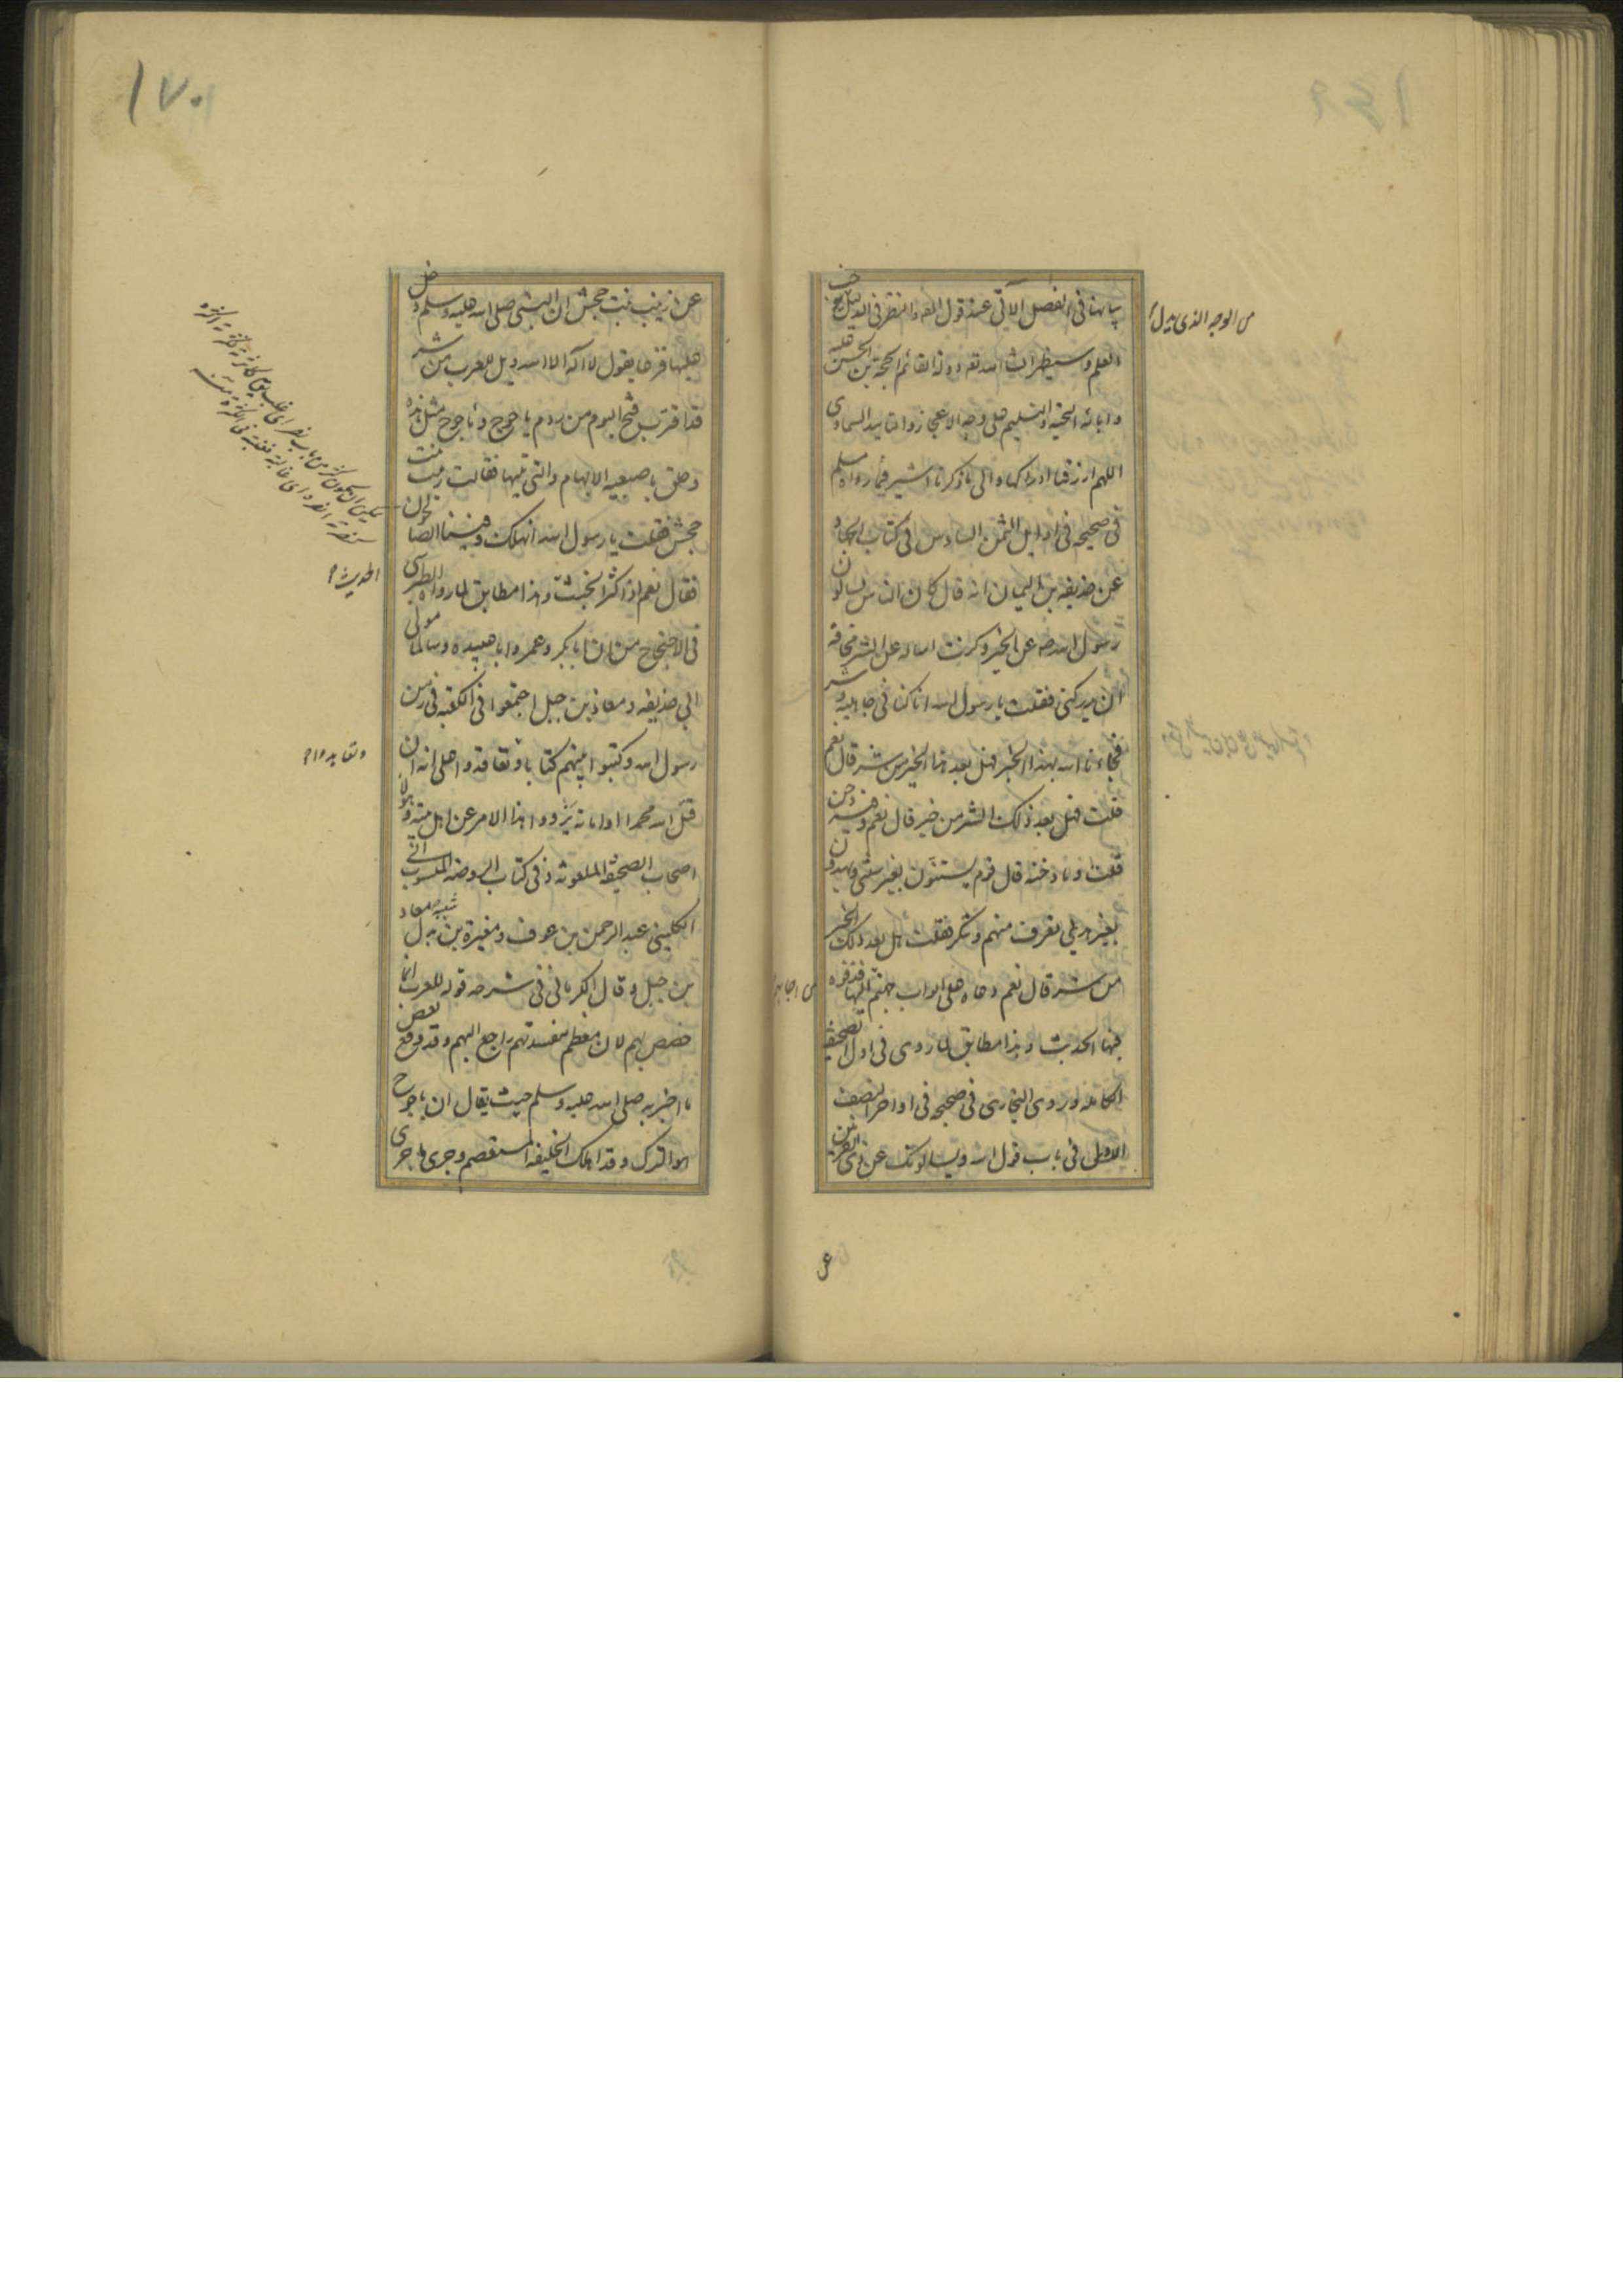 بيانها في الفصل الآتي عند قول المه والنظر في الدليل يخ
العلم وسيظهر انشا الله تعه دولة القائم الحجة بن الحسن عليه
وابائه التحية والتسليم على وجه الاعجاز والتاييد السماوي
اللهم ارزقنا ادراكها والى ما ذكرنا اشير فيما رواه مسلم
في صحيحه في اوايل الثمن السادس في كتاب الجهاد
عن حذيفة بن اليمان انه قال كان الناس يسالون
رسول الله صه عن الخير وكنت اساله عن الشر مخافة
ان يدركني فقلت يا رسول الله انا كنا في جاهلية وشر
فجاءنا الله بهذا الخير فهل بعد هذا الخير من شر قال نعم
قلت فهل بعد ذلك الشر من خير قال نعم وفيه دخن
قلت وما دخنه قال قوم يستنون بغير سنتي ويهدون
بغير هديي تعرف منهم وتنكر فقلت هل بعد ذلك الخير
من شر قال نعم دعاة على ابواب جهنم من اجابهم اليها قذفوه
فيها الحديث وهذا مطابق لما روي في اول الصحيفة
الكاملة وروى البخاري في صحيحه في اواخر النصف
الاول في باب قول الله ويسالونك عن ذي القرنين
من الوجه الذي يدل
عن
١٧٠
عن زينب بنت جحش ان النبي صلى الله عليه وسلم دخل
عليها فزعا يقول لا اله الا الله ويل للعرب من شر
قد اقترب فتح اليوم من ردم ياجوج وماجوج مثل هذه
وحلق باصبعيه الابهام والتي تليها فقالت زينب بنت
جحش فقلت يا رسول الله انهلك وفينا الصالحون
فقال نعم اذا كثر الخبث وهذا مطابق لما رواه الطبرسي
في الاحتجاج من ان ابابكر وعمر وابا عبيده وسالما مولى
ابي حذيفه ومعاذ بن جبل اجتمعوا في الكعبة في زمن
رسول الله وكتبوا بينهم كتابا وتعاقدوا على انه ان
قتل الله محمدا او اماته يزووا هذا الامر عن اهل بيته وهولا
اصحاب الصحيفة الملعونه وفي كتاب الروضه المنسوب الى
الكليني عبد الرحمن بن عوف ومغيرة بن شعبه بدل معاذ
بن جبل وقال الكرماني في شرحه قوله للعرب انما
خصص بهم لان معظم مفسدتهم راجع اليهم وقد وقع بعض
ما اخبر به صلى الله عليه وسلم حيث يقال ان ياجوج
هو الترك وقد اهلك الخليفة المستعصم وجرى ما جرى
الحديث
وتعاهدوا